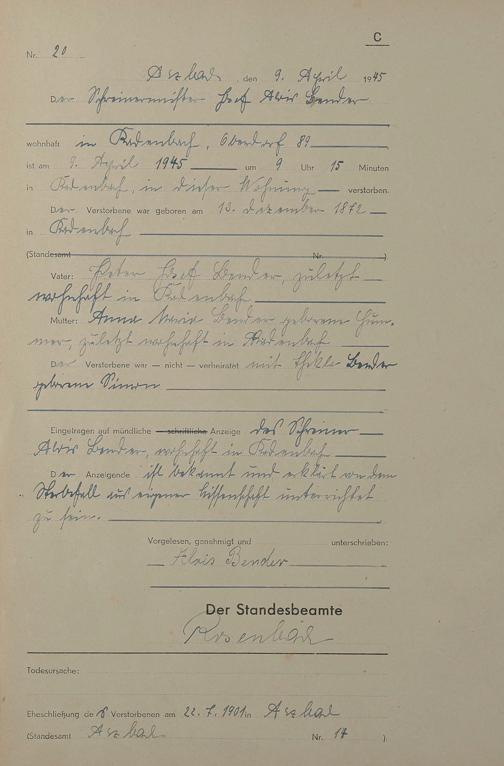 C
Nr. 20
Arzbach, den 9. April 1945
Der Schreinermeister Josef Alois Bender
wohnhaft in Kadenbach, Oberdorf 89
ist am 9. April 1945 um 9 Uhr 15 Minuten
in Kadenbach, in dieser Wohnung verstorben.
Der Verstorbene war geboren am 13. Dezember 1872
in Kadenbach
(Standesamt Nr. )
Vater: Peter Josef Bender, zuletzt
wohnhaft in Kadenbach.
Mutter: Anna Maria Bender geborene Hum-
mer, zuletzt wohnhaft in Kadenbach
Der Verstorbene war — nicht — verheiratet mit Thekla Bender
geborene Simon
Eingetragen auf mündliche — schriftliche — Anzeige des Schreiner
Alois Bender, wohnhaft in Kadenbach
Der Anzeigende ist bekannt und erklärt von dem
Sterbefall aus eigener Wissenschaft unterrichtet
zu sein.
Vorgelesen, genehmigt und unterschrieben:
Alois Bender
Der Standesbeamte
Todesursache:
Eheschließung des Verstorbenen am 22.7.1901 in Arzbach
(Standesamt Arzbach Nr. 17 ).